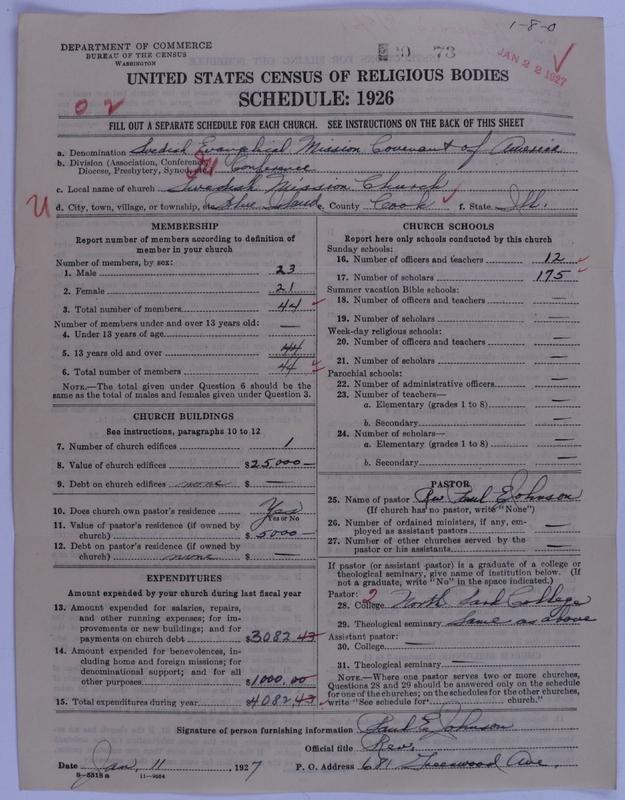 1-8-0
DEPARTMENT OF COMMERCE
BUREAU OF THE CENSUS
WASHINGTON
73
JAN 22 1927
UNITED STATES CENSUS OF RELIGIOUS BODIES
SCHEDULE: 1926
02
FILL OUT A SEPARATE SCHEDULE FOR EACH CHURCH. SEE INSTRUCTIONS ON THE BACK OF THIS SHEET
a. Denomination Swedish Evangelical Mission Covenant of America
b. Division (Association, Conference, Diocese, Presbytery, Synod, etc.) Conference
c. Local name of church Swedish Mission Church
U d. City, town, village, or township, etc. Blue Island e. County Cook f. State Ill.
MEMBERSHIP
Report number of members according to definition of
member in your church
Number of members, by sex:
1. Male 23
2. Female 21
3. Total number of members 44
Number of members under and over 13 years old:
4. Under 13 years of age —
5. 13 years old and over 44
6. Total number of members 44
NOTE.—The total given under Question 6 should be the
same as the total of males and females given under Question 3.
CHURCH BUILDINGS
See instructions, paragraphs 10 to 12
7. Number of church edifices 1
8. Value of church edifices $25,000—
9. Debt on church edifices none $ —
10. Does church own pastor's residence Yes
Yes or No
11. Value of pastor's residence (if owned by
church) $5000—
12. Debt on pastor's residence (if owned by
church) none $ —
EXPENDITURES
Amount expended by your church during last fiscal year
13. Amount expended for salaries, repairs,
and other running expenses; for im-
provements or new buildings; and for
payments on church debt $3082 43
14. Amount expended for benevolences, in-
cluding home and foreign missions; for
denominational support; and for all
other purposes $1000.00
15. Total expenditures during year $4082 43
CHURCH SCHOOLS
Report here only schools conducted by this church
Sunday schools:
16. Number of officers and teachers 12
17. Number of scholars 175
Summer vacation Bible schools:
18. Number of officers and teachers —
19. Number of scholars —
Week-day religious schools:
20. Number of officers and teachers —
21. Number of scholars —
Parochial schools:
22. Number of administrative officers —
23. Number of teachers—
a. Elementary (grades 1 to 8) —
b. Secondary —
24. Number of scholars—
a. Elementary (grades 1 to 8) —
b. Secondary —
PASTOR
25. Name of pastor Rev Paul E Johnson
(If church has no pastor, write "None")
26. Number of ordained ministers, if any, em-
ployed as assistant pastors —
27. Number of other churches served by the
pastor or his assistants —
If pastor (or assistant pastor) is a graduate of a college or
theological seminary, give name of institution below. (If
not a graduate, write "No" in the space indicated.)
Pastor: 2
28. College North Park College
29. Theological seminary Same as above
Assistant pastor:
30. College —
31. Theological seminary —
NOTE.—Where one pastor serves two or more churches,
Questions 28 and 29 should be answered only on the schedule
for one of the churches; on the schedules for the other churches,
write "See schedule for church."
Signature of person furnishing information Paul E. Johnson
Official title Rev.
Date Jan. 11, 1927 P. O. Address 681 Greenwood Ave.
8-5318 a 11-9054